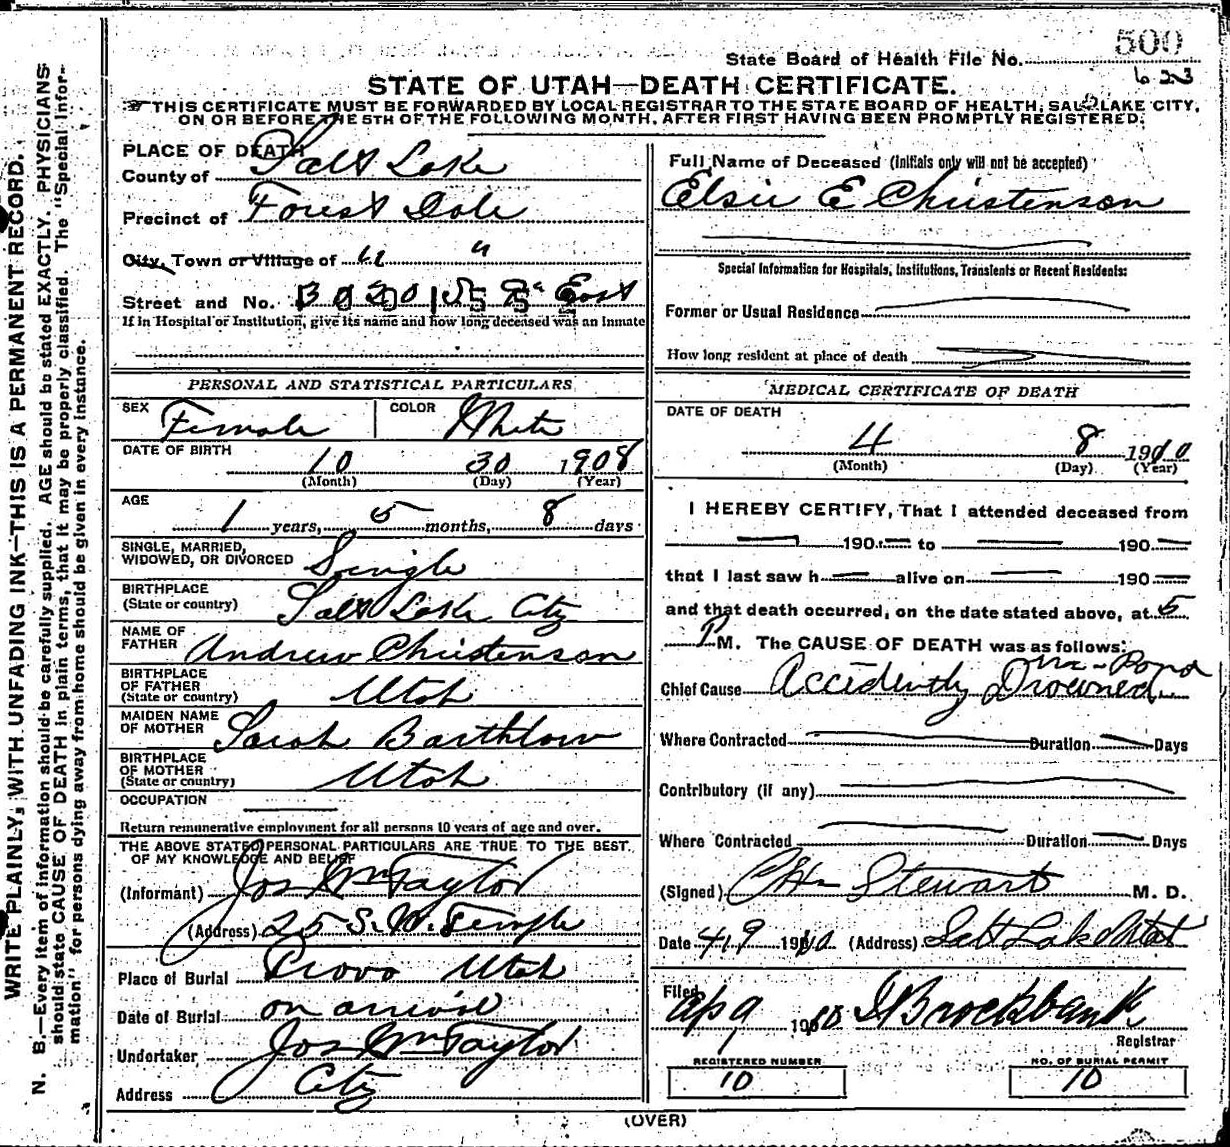 500
State Board of Health File No.
623
STATE OF UTAH—DEATH CERTIFICATE.
THIS CERTIFICATE MUST BE FORWARDED BY LOCAL REGISTRAR TO THE STATE BOARD OF HEALTH, SALT LAKE CITY,
ON OR BEFORE THE 5TH OF THE FOLLOWING MONTH, AFTER FIRST HAVING BEEN PROMPTLY REGISTERED.
WRITE PLAINLY, WITH UNFADING INK—THIS IS A PERMANENT RECORD.
N. B.—Every item of information should be carefully supplied. AGE should be stated EXACTLY. PHYSICIANS
should state CAUSE OF DEATH in plain terms, that it may be properly classified. The "Special Infor-
mation" for persons dying away from home should be given in every instance.
PLACE OF DEATH
County of Salt Lake
Precinct of Forest Dale
City, Town or Village of " "
Street and No. East
If in Hospital or Institution, give its name and how long deceased was an Inmate
PERSONAL AND STATISTICAL PARTICULARS
SEX Female COLOR White
DATE OF BIRTH
10 30 1908
(Month) (Day) (Year)
AGE
1 years, 5 months, 8 days
SINGLE, MARRIED,
WIDOWED, OR DIVORCED Single
BIRTHPLACE
(State or country) Salt Lake City
NAME OF
FATHER Andrew Christenson
BIRTHPLACE
OF FATHER
(State or country) Utah
MAIDEN NAME
OF MOTHER Sarah Barthlow
BIRTHPLACE
OF MOTHER
(State or country) Utah
OCCUPATION
Return remunerative employment for all persons 10 years of age and over.
THE ABOVE STATED PERSONAL PARTICULARS ARE TRUE TO THE BEST
OF MY KNOWLEDGE AND BELIEF
(Informant) Jos Wm Taylor
(Address) 25 S. W. Temple
Place of Burial Provo Utah
Date of Burial on arrival
Undertaker Jos Wm Taylor
Address City
Full Name of Deceased (Initials only will not be accepted)
Elsie E Christenson
Special Information for Hospitals, Institutions, Transients or Recent Residents:
Former or Usual Residence
How long resident at place of death
MEDICAL CERTIFICATE OF DEATH
DATE OF DEATH
4 8 1910
(Month) (Day) (Year)
I HEREBY CERTIFY, That I attended deceased from
190 to 190
that I last saw h alive on 190
and that death occurred, on the date stated above, at 5
P M. The CAUSE OF DEATH was as follows:
Chief Cause Accidently Drowned in a Pond
Where Contracted Duration Days
Contributory (if any)
Where Contracted Duration Days
(Signed) Stewart M. D.
Date 4/9 1910 (Address) Salt Lake Utah
Filed Apr 9 1910 Brockbank
Registrar
REGISTERED NUMBER
10
NO. OF BURIAL PERMIT
10
(OVER)